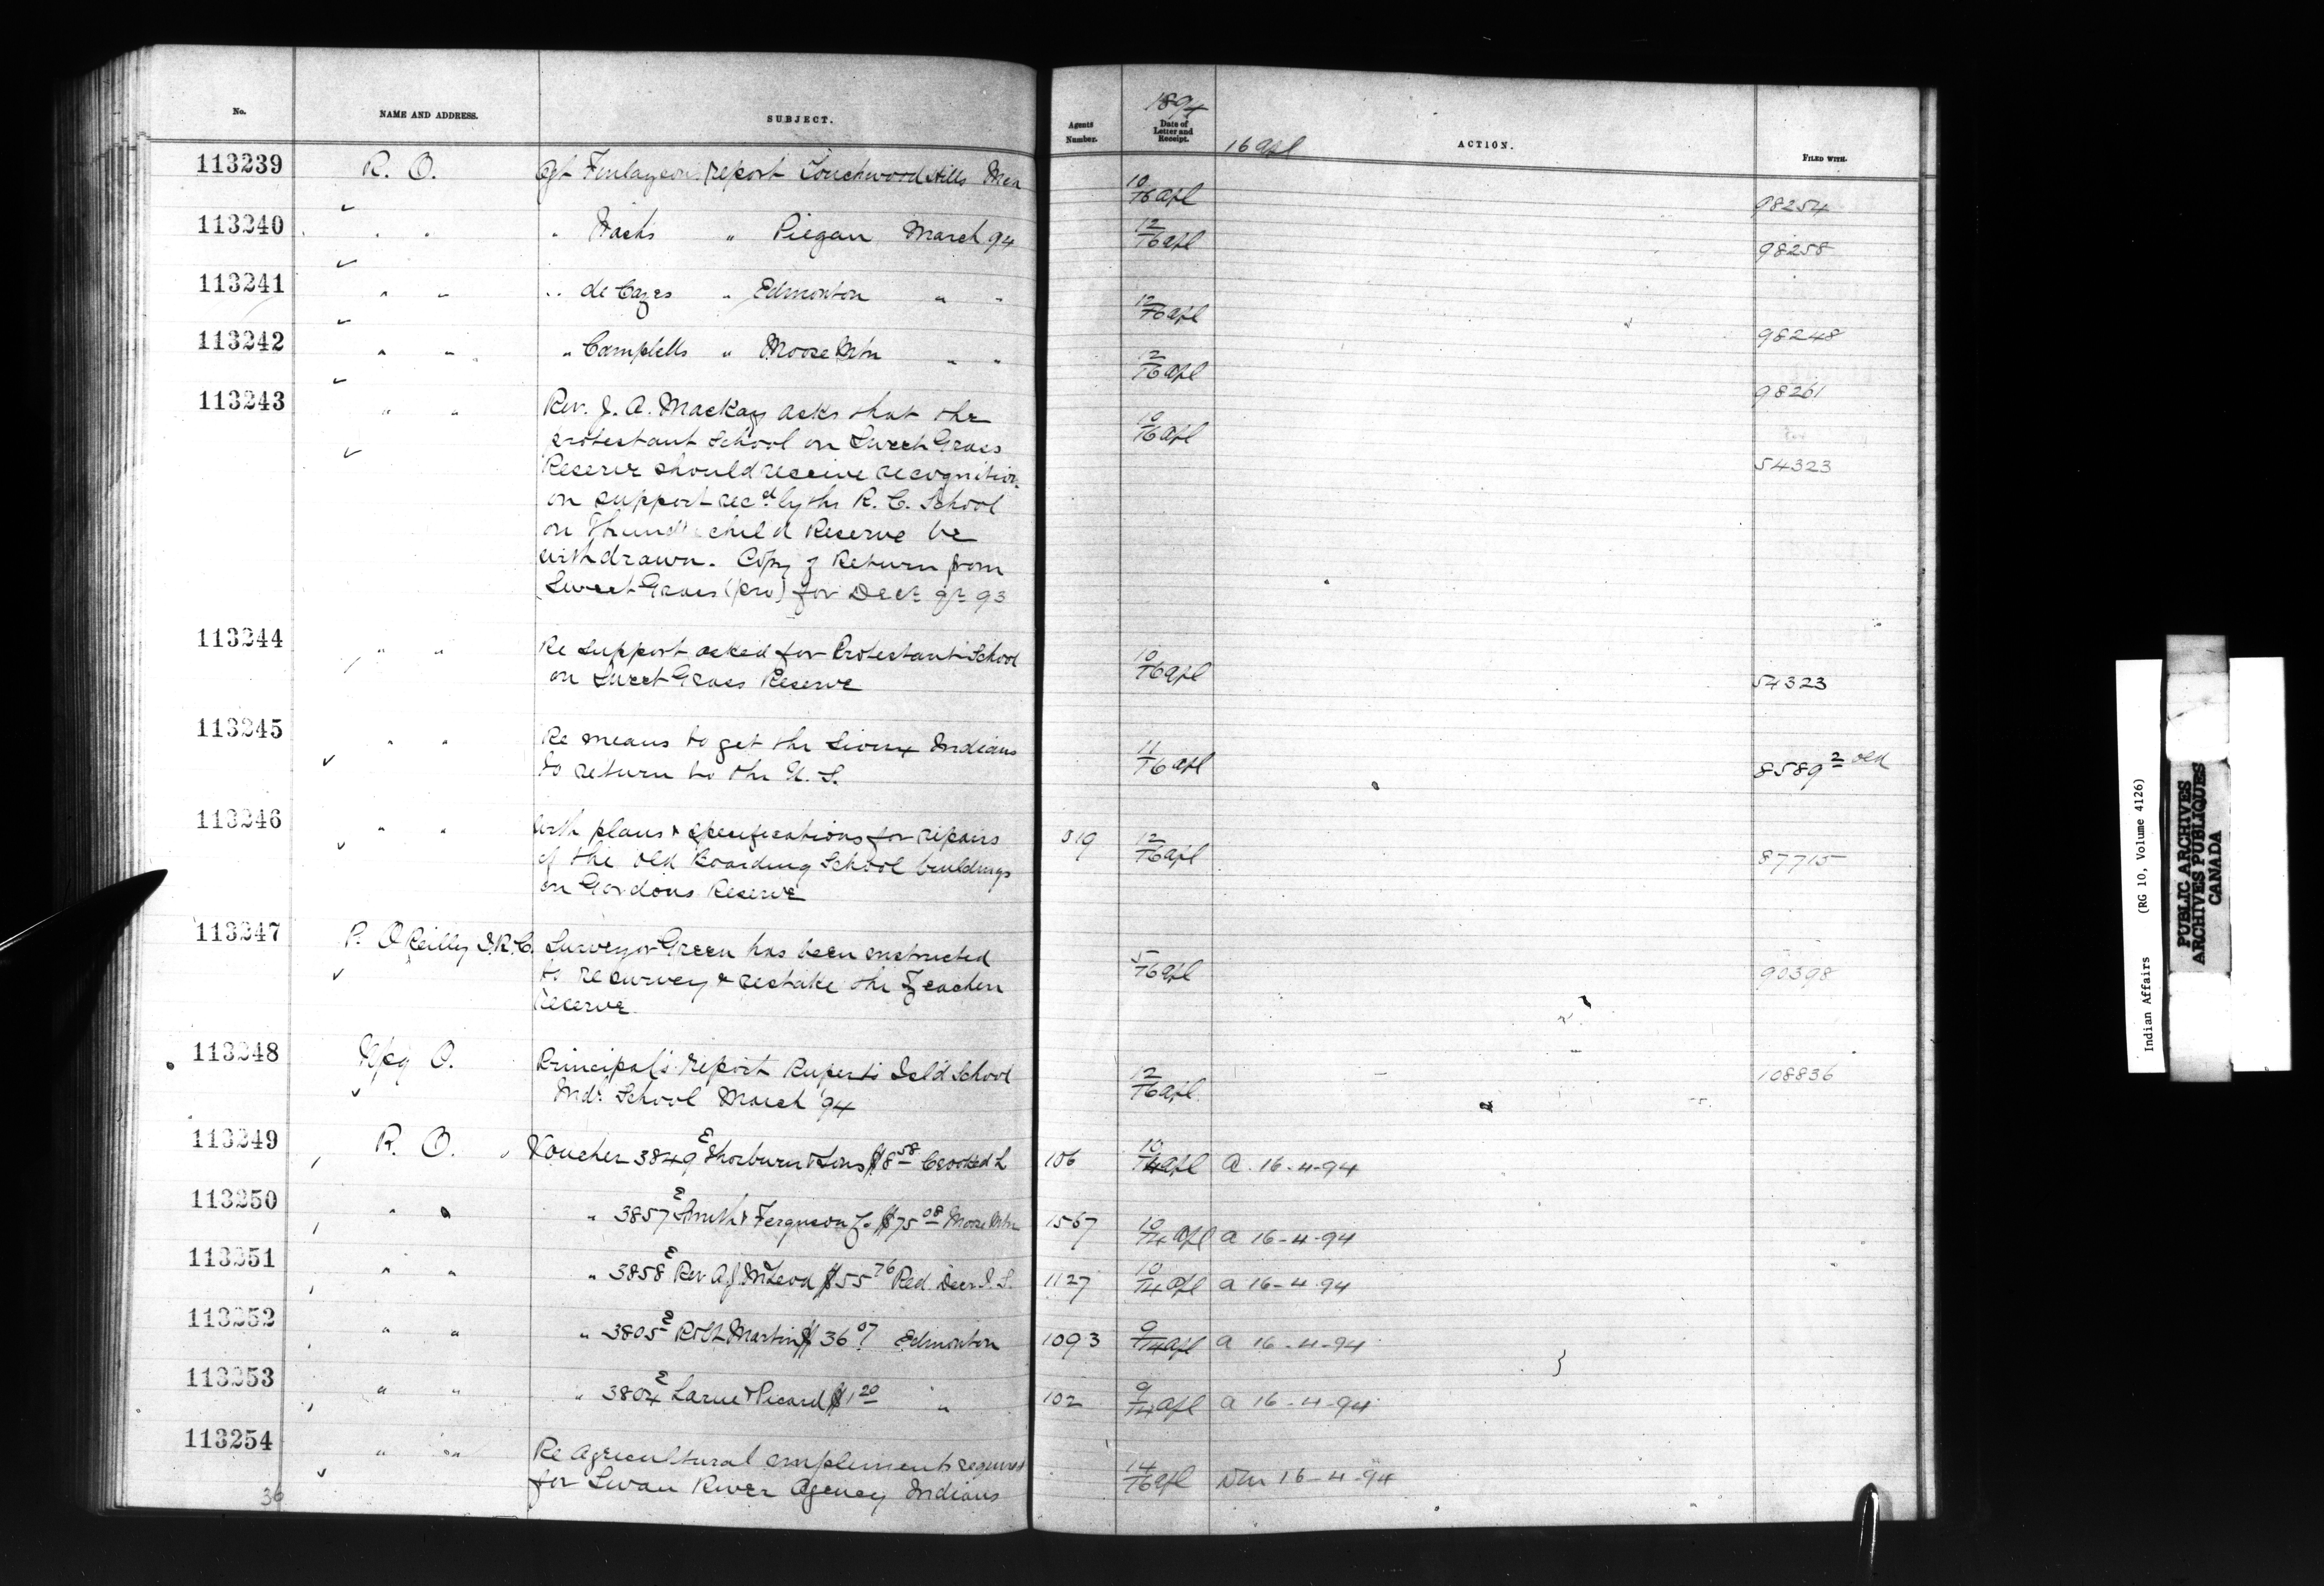 No. NAME AND ADDRESS. SUBJECT. Agents Number. 1894 Date of Letter and Receipt. 16 Apl ACTION. FILED WITH.
113239 R. O. Agt Finlayson report Touchwood Hills Mch 10/16 Apl 98254
113240 " " " Nash's " Piegan March 94 12/16 Apl 98258
113241 " " " de Cazes " Edmonton " " 12/16 Apl 98248
113242 " " " Campbells " Moose Mtn " " 12/16 Apl 98261
113243 " " Rev. J. A. Mackay asks that the 10/16 Apl 54323
protestant School on Sweet Grass
Reserve should receive recognition
on support recd. by the R. C. School
on Thund child Reserve be
withdrawn. Copy of Return from
Sweet Grass (pro) for Decr qr 93
113244 " " Re support asked for Protestant School 10/16 Apl 54323
on Sweet Grass Reserve
113245 " " Re means to get the Sioux Indians 11/16 Apl 8589 2 old
to return to the U. S.
113246 " " With plans & specifications for repairs 319 12/16 Apl 87715
of the old Boarding School buildings
on Gordons Reserve
113247 P. O'Reilly I.R.C. Surveyor Green has been instructed 5/16 Apl 90398
to resurvey & restake the
Reserve
113248 Wpg O. Principal's report Ruperts Isld School 12/16 Apl 108836
Indn School March '94
113249 R. O. Voucher 3849 E Thorburn & Sons $8 58 Crooked L 106 10/14 Apl A. 16-4-94
113250 " " " 3857 E Smith & Ferguson Co $75 08 Moose Mtn 1567 10/14 Apl A 16-4-94
113251 " " " 3858 E Rev A J McLeod $55 76 Red Deer I. S. 1127 10/14 Apl A 16-4-94
113252 " " " 3805 E Robt Martin $36 07 Edmonton 1093 9/14 Apl A 16-4-94
113253 " " " 3804 E Larue & Picard $1 20 " 102 9/14 Apl A 16-4-94
113254 " " Re Agricultural implements required 14/16 Apl Wm 16-4-94
for Swan River Agency Indians
36
Indian Affairs (RG 10, Volume 4126)
PUBLIC ARCHIVES
ARCHIVES PUBLIQUES
CANADA